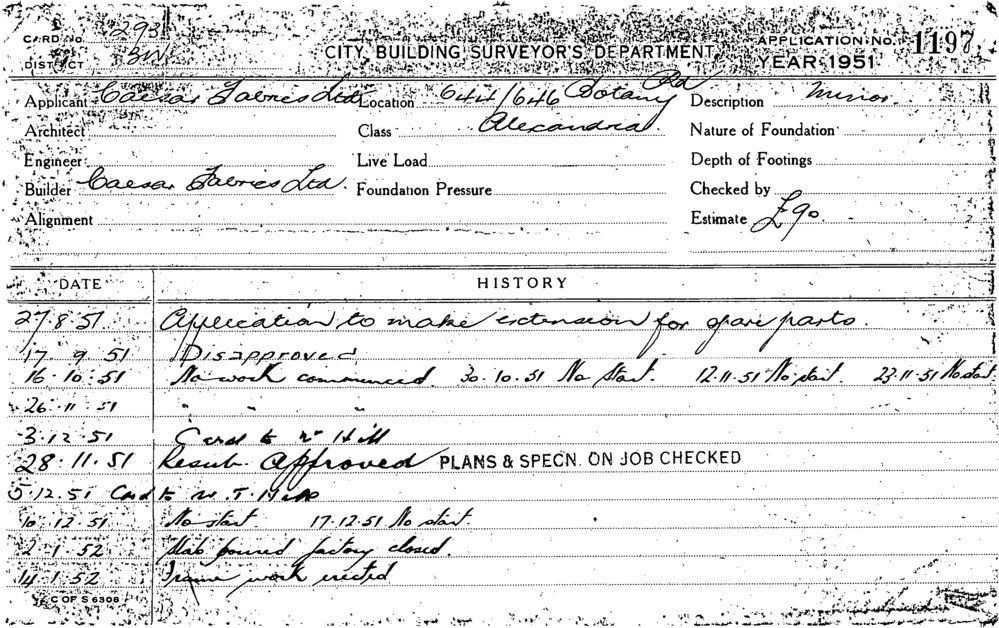 CARD No. 293
CITY BUILDING SURVEYOR'S DEPARTMENT
APPLICATION No. 1197
DISTRICT 3W
YEAR 1951
Applicant Caesar Fabrics Ltd Location 644/646 Botany Rd Description Minor
Architect Class Alexandria Nature of Foundation
Engineer Live Load Depth of Footings
Builder Caesar Fabrics Ltd. Foundation Pressure Checked by
Alignment Estimate £90
DATE HISTORY
27.8.51 Application to make extension for spare parts.
17 9 51 Disapproved
16.10.51 No work commenced 30.10.51 No start. 12.11.51 No start. 23.11.51 No start
26.11.51 " " "
3.12.51 Card to Mr Hill
28.11.51 Resub. Approved PLANS & SPECN. ON JOB CHECKED
5.12.51 Card to Mr. T. Hill
10.12.51 No start 17.12.51 No start.
2.1.52 Slab poured factory closed.
14.1.52 Frame work erected
C OF S 6308